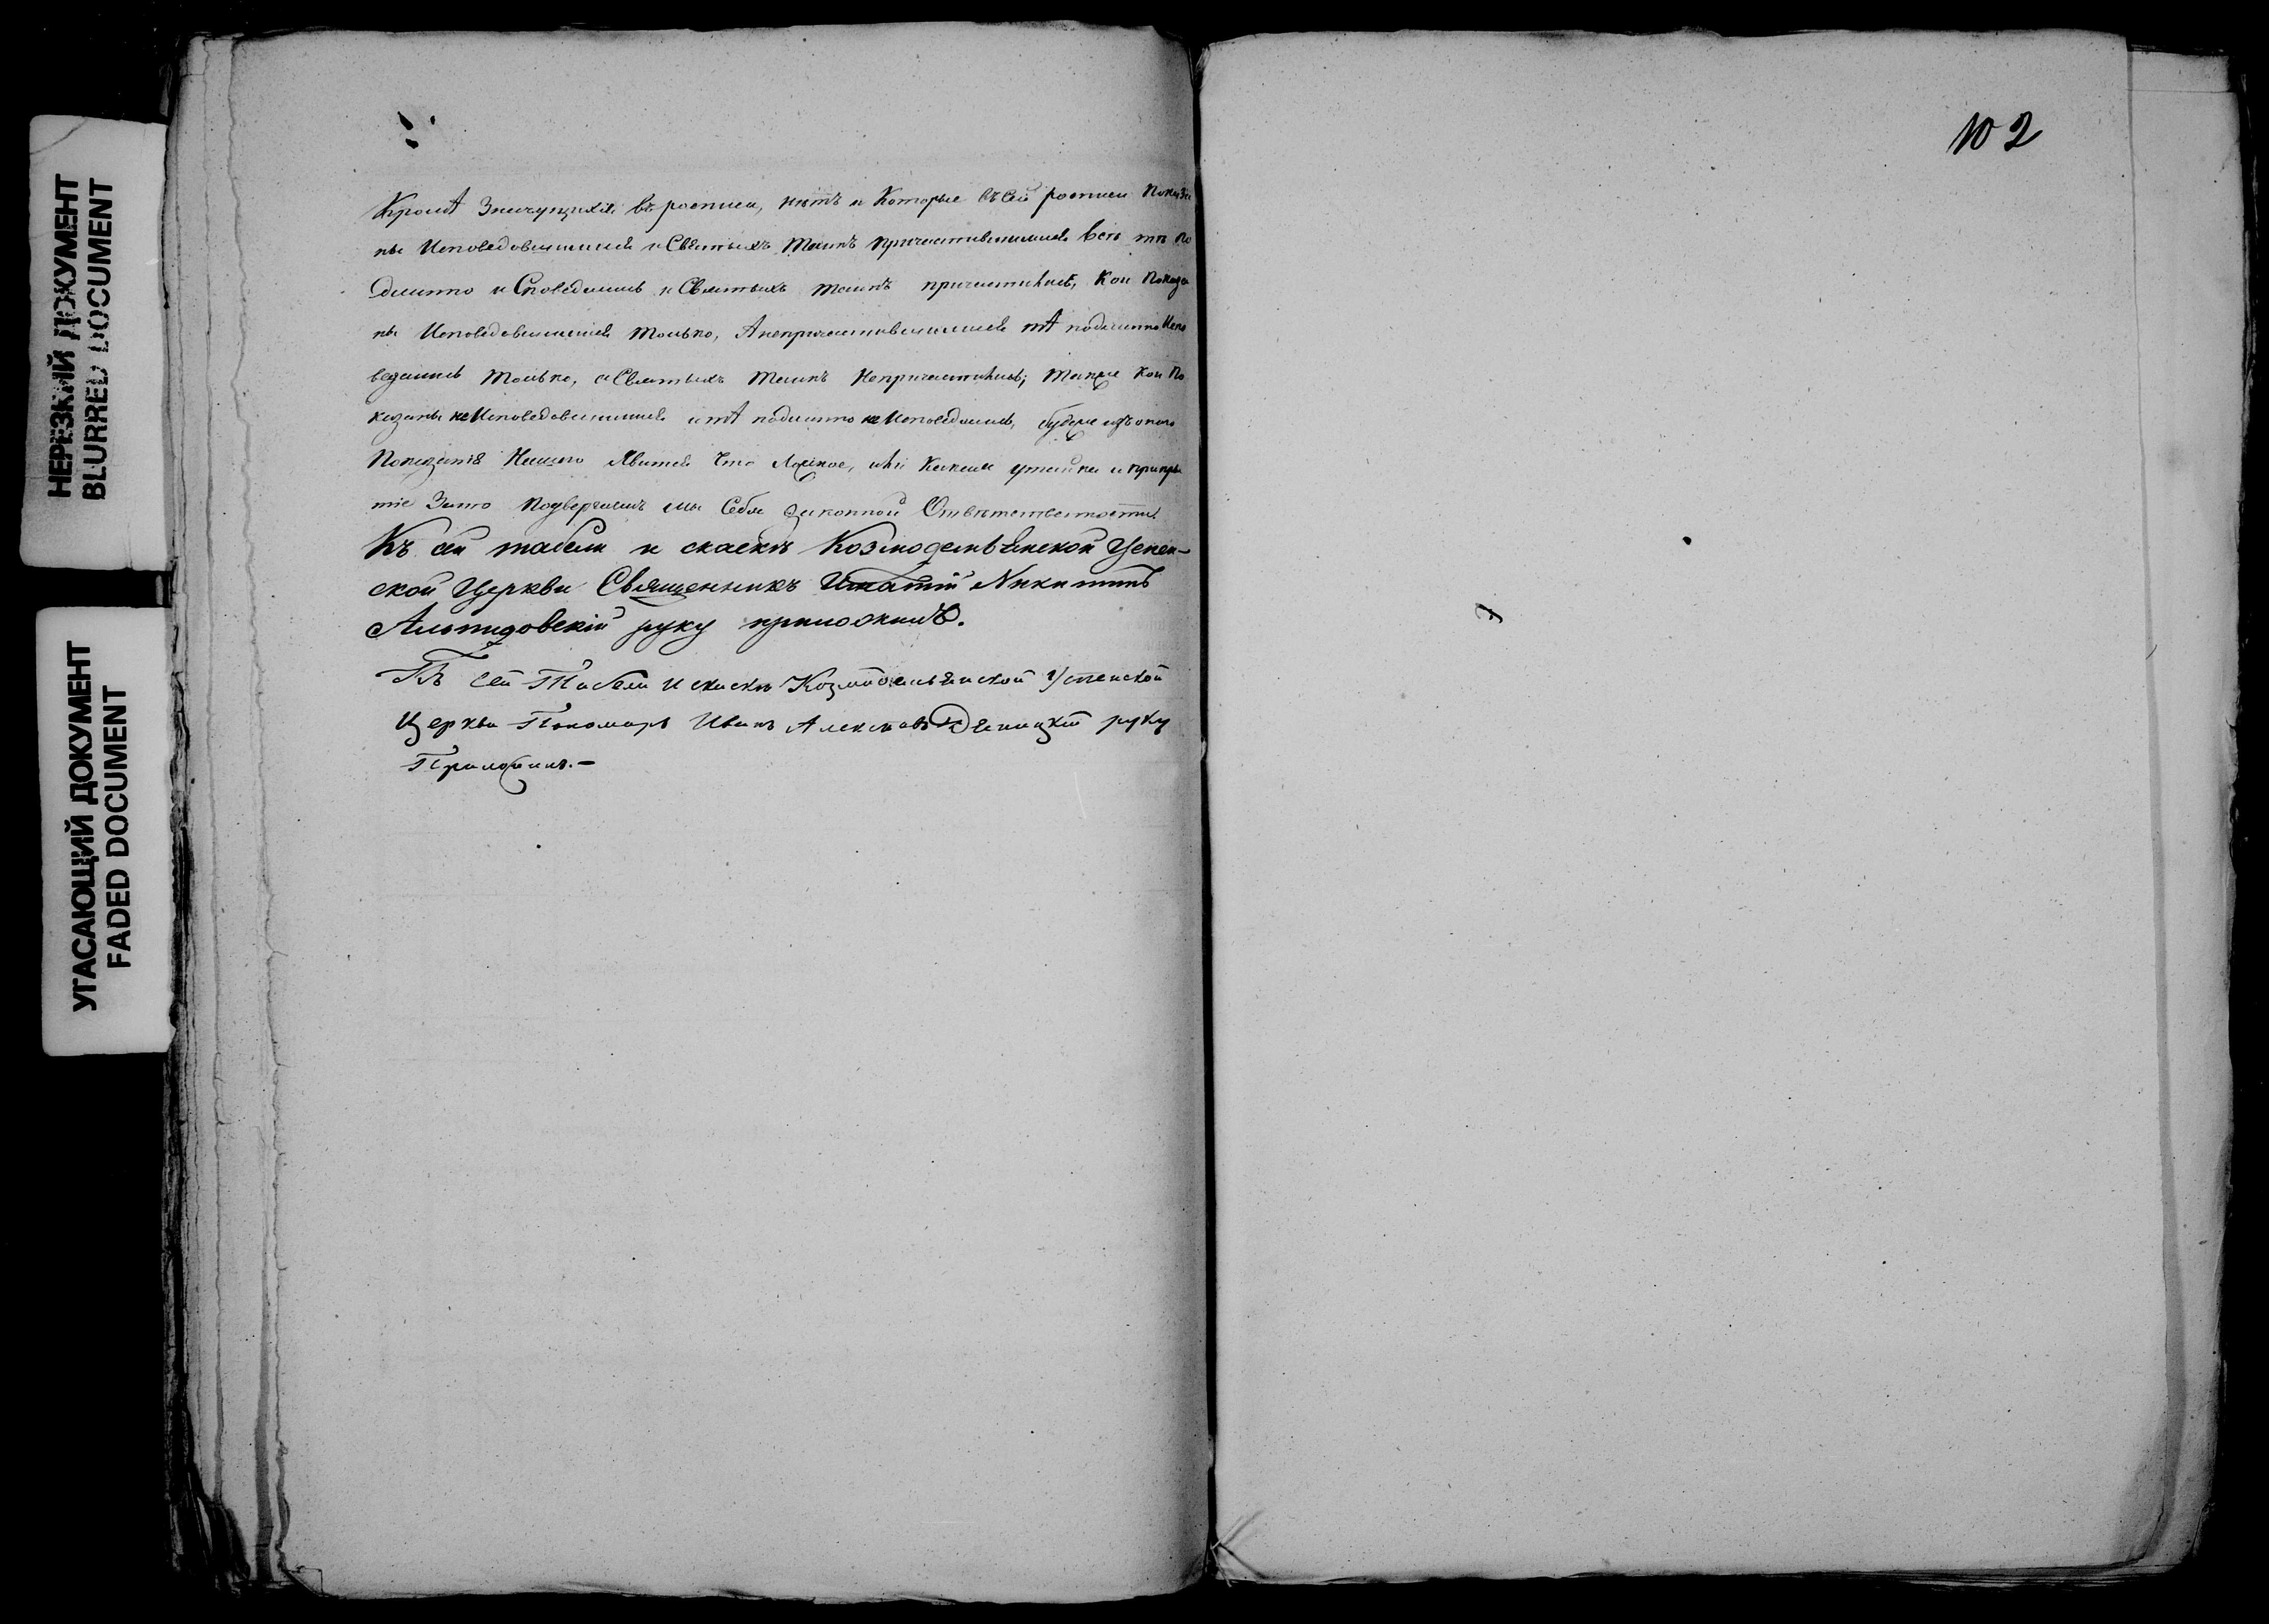 НЕРЕЗКИЙ ДОКУМЕНТ
BLURRED DOCUMENT
УГАСАЮЩИЙ ДОКУМЕНТ
FADED DOCUMENT
102
Кромѣ Значущихся въ росписи, нѣтъ и Которые въ Сей росписи Показа
ны Исповедовшимися и Святыхъ Таинъ причастившимися всѣ тѣ по
длинно и Споведались и Святыхъ таинъ причастились, Кои Показа
ны Исповедовшимися только, А непричастившимися тѣ подлинно Испо
ведались только, а Святыхъ Таинъ Непричастились; Также Кои По
казаны не Исповедовшимися и тѣ подлинно не Исповедались, буде же изъ оного
Показания Нашего Явится Что Ложное, или Какая утайка и прикры
тіе Зато Подвергаемъ мы Себя законной Ответственности.
Къ сей табели и скаскѣ Козмодемьянской Успен-
ской Церкви Священникъ Игнатій Никитинъ
руку приложилъ.
Къ сей Табели и скаскѣ Козмодемьянской Успенской
Церкви Пономарь Иванъ руку
Приложилъ.-